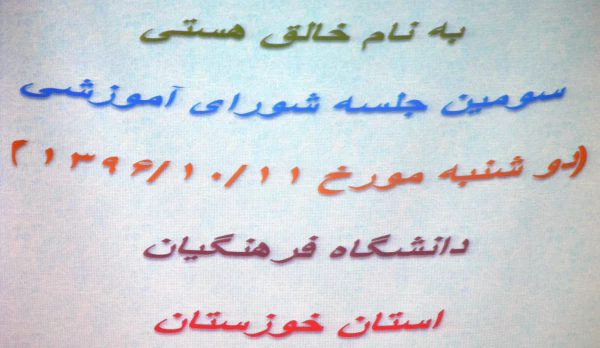 به نام خالق هستی
سومین جلسه شورای آموزشی
(دو شنبه مورخ ۱۳۹۶/۱۰/۱۱)
دانشگاه فرهنگیان
استان خوزستان